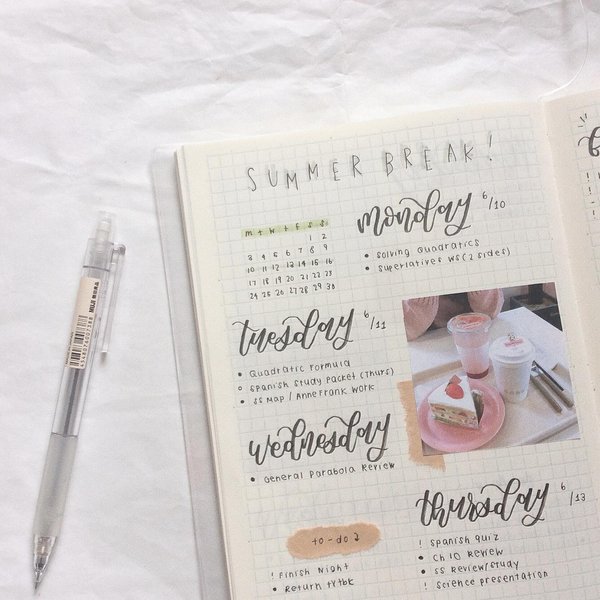 SUMMER BREAK!
M T W T F S S
1 2
3 4 5 6 7 8 9
10 11 12 13 14 15 16
17 18 19 20 21 22 23
24 25 26 27 28 29 30
monday 6/10
• Solving Quadratics
• Superlatives WS (2 sides)
tuesday 6/11
• Quadratic Formula
○ Spanish Study Packet (Thurs)
• SS Map / Anne Frank Work
wednesday
• General Parabola Review
thursday 6/13
! Spanish Quiz
• Ch 10 Review
• SS Review/Study
! Science presentation
to-do
! Finish Night
• Return txtbk
MUJI 無印良品